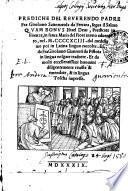 PREDICHE DEL REVERENDO PADRE
Fra Gieronimo Sauonarola da Ferrara, sopra il Salmo
QVAM BONVS Israel Deus, Predicate in
Firenze, in santa Maria del Fiore
nel M. CCCCXCIII. dal medesimo
poi in Latina lingua raccolte. Et
da Fra Girolamo Giannotti da Pistoia
in lingua volgare tradotte. Et da
molti eccellentissimi huomini
diligentemente reuiste &
emendate, & in lingua
Tosca impresse.